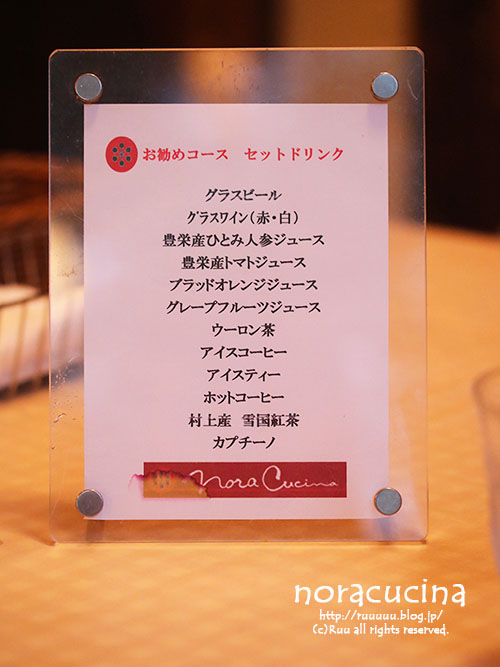 お勧めコース セットドリンク
グラスビール
グラスワイン(赤・白)
豊栄産ひとみ人参ジュース
豊栄産トマトジュース
ブラッドオレンジジュース
グレープフルーツジュース
ウーロン茶
アイスコーヒー
アイスティー
ホットコーヒー
村上産 雪国紅茶
カプチーノ
nora Cucina
noracucina
http://ruuuuu.blog.jp/
(c)Ruu all rights reserved.